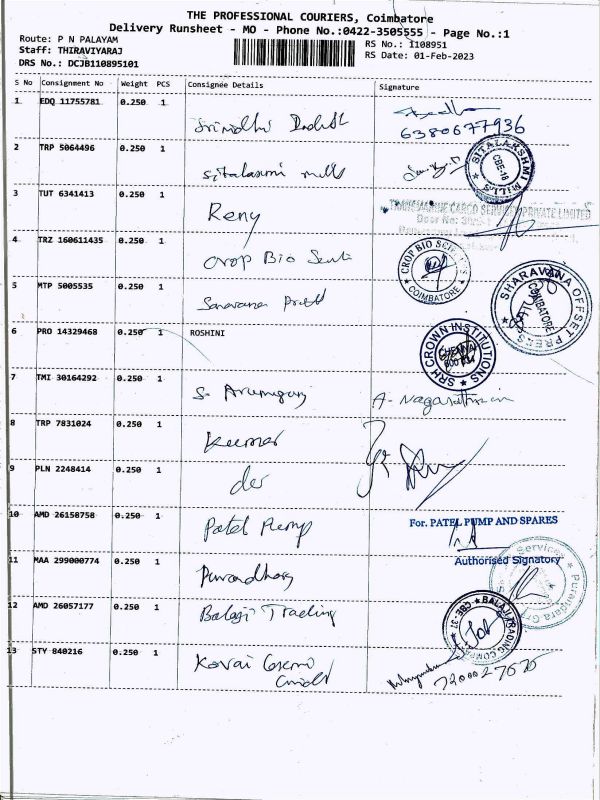 THE PROFESSIONAL COURIERS, Coimbatore
Delivery Runsheet - MO - Phone No.:0422-3505555 - Page No.:1
Route: P N PALAYAM
Staff: THIRAVIYARAJ
DRS No.: DCJB110895101
RS No.: 1108951
RS Date: 01-Feb-2023
S No Consignment No Weight PCS Consignee Details Signature
1 EDQ 11755781 0.250 1
6380677936
2 TRP 5064496 0.250 1 Sitalaxmi mills
SITALAKSHMI MILLS
CBE-18
3 TUT 6341413 0.250 1 Reny
TRANSMARINE CARGO SERVICES PRIVATE LIMITED
4 TRZ 160611435 0.250 1 Crop Bio
CROP BIO
COIMBATORE
5 MTP 5005535 0.250 1 Saravana
SHARAVANA OFFSET PRESS
COIMBATORE
6 PRO 14329468 0.250 1 ROSHINI
SRH CROWN INSTITUTIONS
CHENNAI
7 TMI 30164292 0.250 1 S. Arumugam
8 TRP 7831024 0.250 1 Kumar
9 PLN 2248414 0.250 1
10 AMD 26158758 0.250 1 Patel Pump
For. PATEL PUMP AND SPARES
Authorised Signatory
11 MAA 299000774 0.250 1
Services
12 AMD 26057177 0.250 1 Balaji Trading
BALAJI TRADING COMPANY
CBE-37
13 STY 840216 0.250 1 Kovai